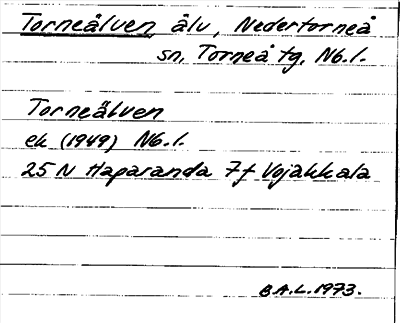 Torneälven älv, Nedertorneå
sn, Torneå tg, Nb.l.
Torneälven
ek (1949) Nb.l.
25 N Haparanda 7f Vojakkala
B.A.L. 1973.